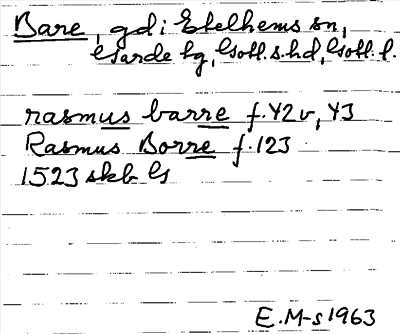 Bare, gd i Etelhems sn,
Garde tg, Gotl. s. hd, Gotl. l.
rasmus barre f. 42v, 43
Rasmus Borre f. 123
1523 skb G
E. M-s 1963